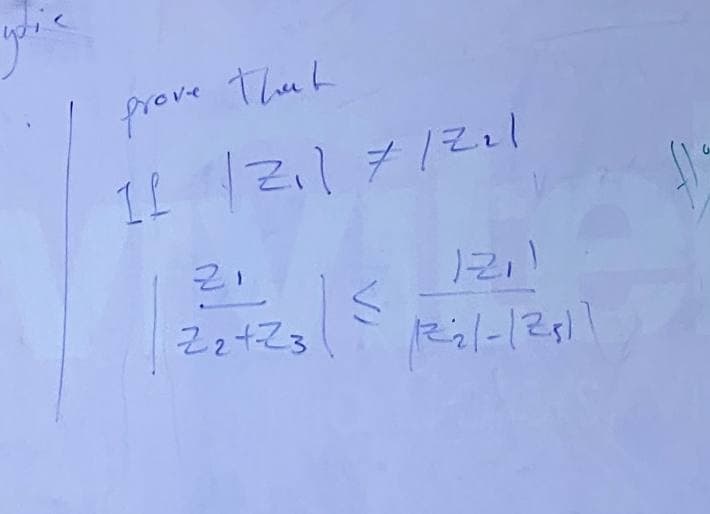 ytic
prove that
If |z₁| ≠ |z₂|
|z₁ / (z₂+z₃)| ≤ |z₁| / ||z₂|-|z₃||